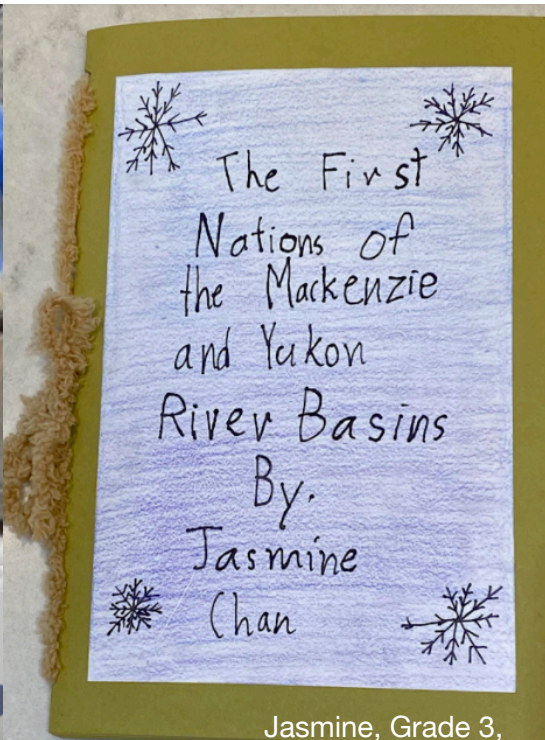 The First
Nations of
the Mackenzie
and Yukon
River Basins
By.
Jasmine
Chan
Jasmine, Grade 3,